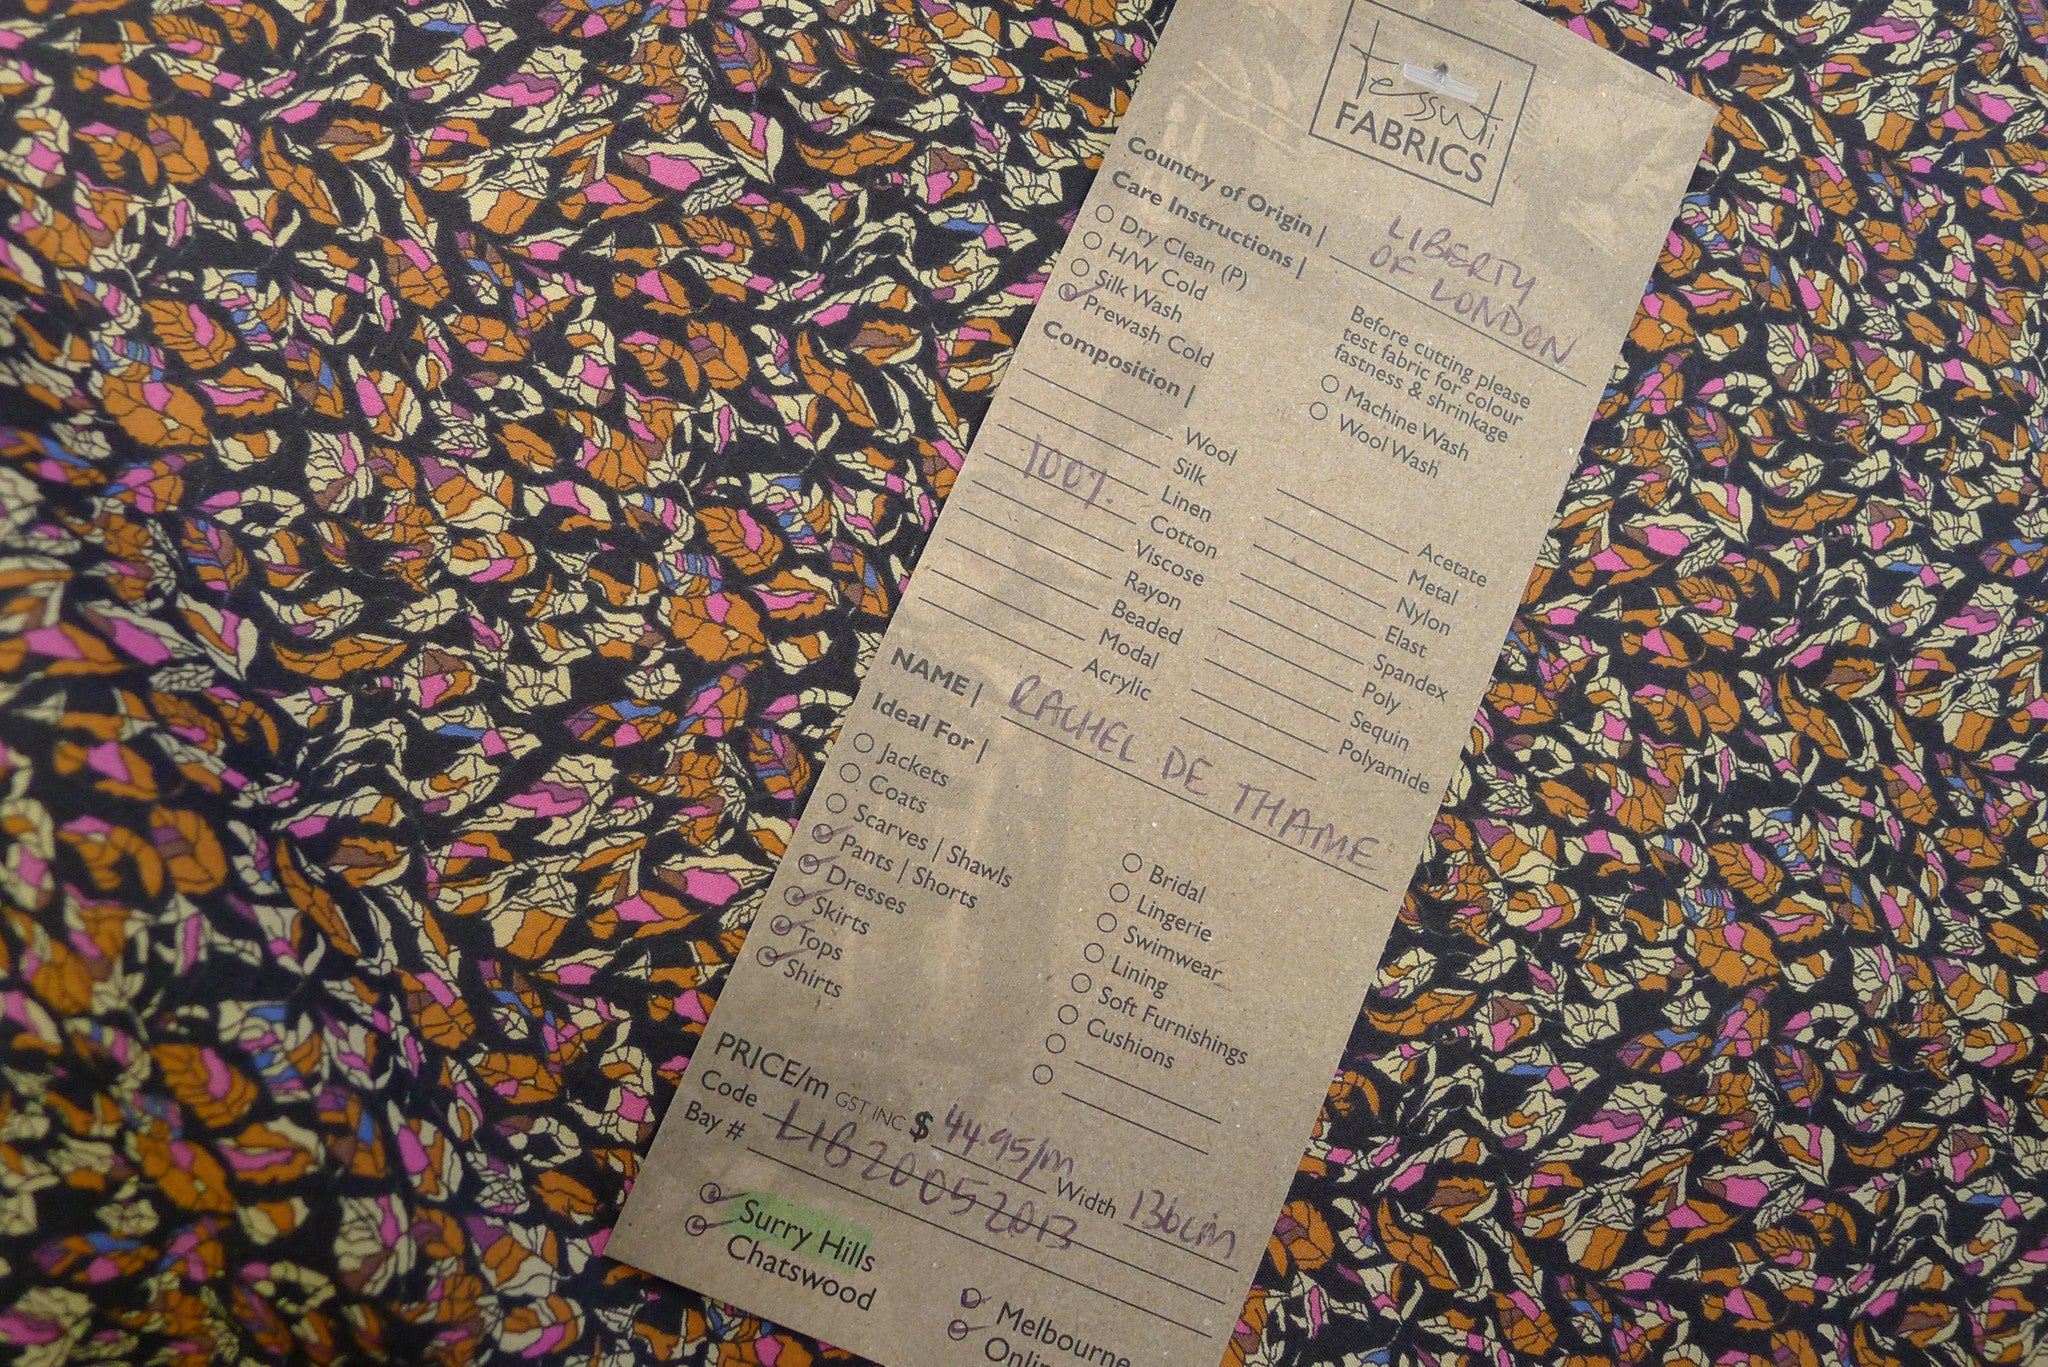 tessuti
FABRICS
Country of Origin | LIBERTY
OF LONDON
Care Instructions |
Dry Clean (P)
H/W Cold
Silk Wash
Prewash Cold
Before cutting please
test fabric for colour
fastness & shrinkage
Machine Wash
Wool Wash
Composition |
Wool
Silk
Linen
100% Cotton
Viscose
Rayon
Beaded
Modal
Acrylic
Acetate
Metal
Nylon
Elast
Spandex
Poly
Sequin
Polyamide
NAME | RACHEL DE THAME
Ideal For |
Jackets
Coats
Scarves | Shawls
Pants | Shorts
Dresses
Skirts
Tops
Shirts
Bridal
Lingerie
Swimwear
Lining
Soft Furnishings
Cushions
PRICE/m GST INC $ 44.95/m
Code LIB20052013 Width 136cm
Bay #
Surry Hills
Chatswood
Melbourne